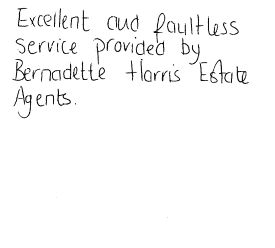 Excellent and faultless
service provided by
Bernadette Harris Estate
Agents.